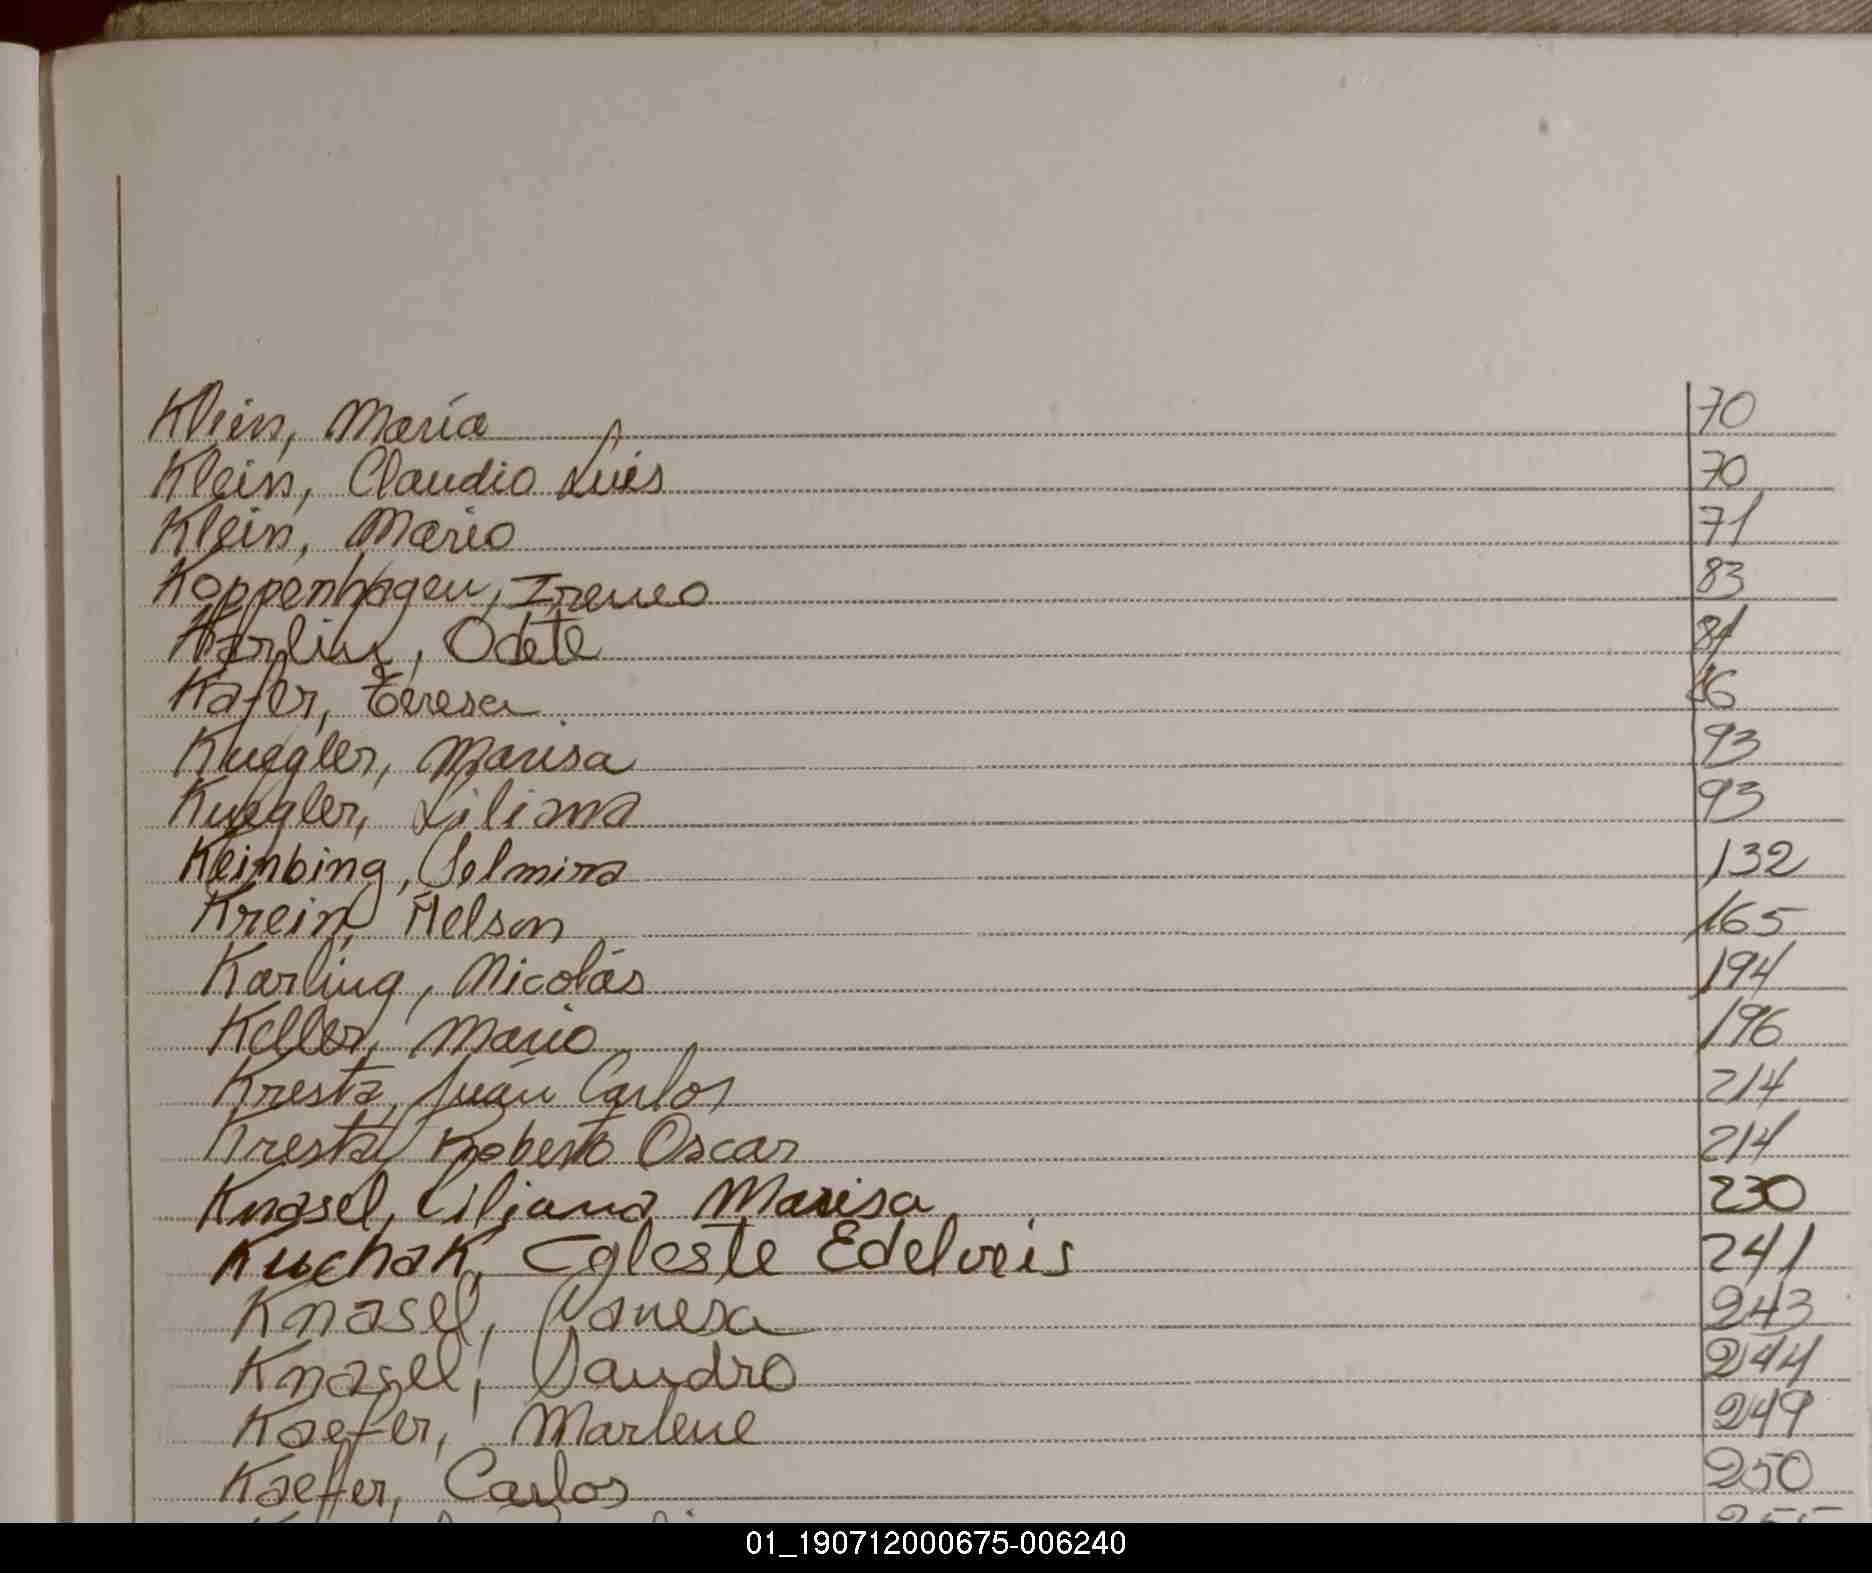 Klein, María 70
Klein, Claudio Luis 70
Klein, Mario 71
Koppenhagen, Ireneo 83
Karling, Odete 84
Kafer, Teresa
Kuegler, Marisa 93
Kuegler, Liliana 93
Kleinbing, Selmira 132
Krein, Nelson 165
Karling, Nicolás 194
Keller, Mario 196
Kresta, Juán Carlos 214
Kresta, Roberto Oscar 214
Knasel, Liliana Marisa 230
Kuchak, Celeste Edelveis 241
Knasel, Vanesa 243
Knasel, Sandro 244
Kaefer, Marlene 249
Kaefer, Carlos 250
01_190712000675-006240